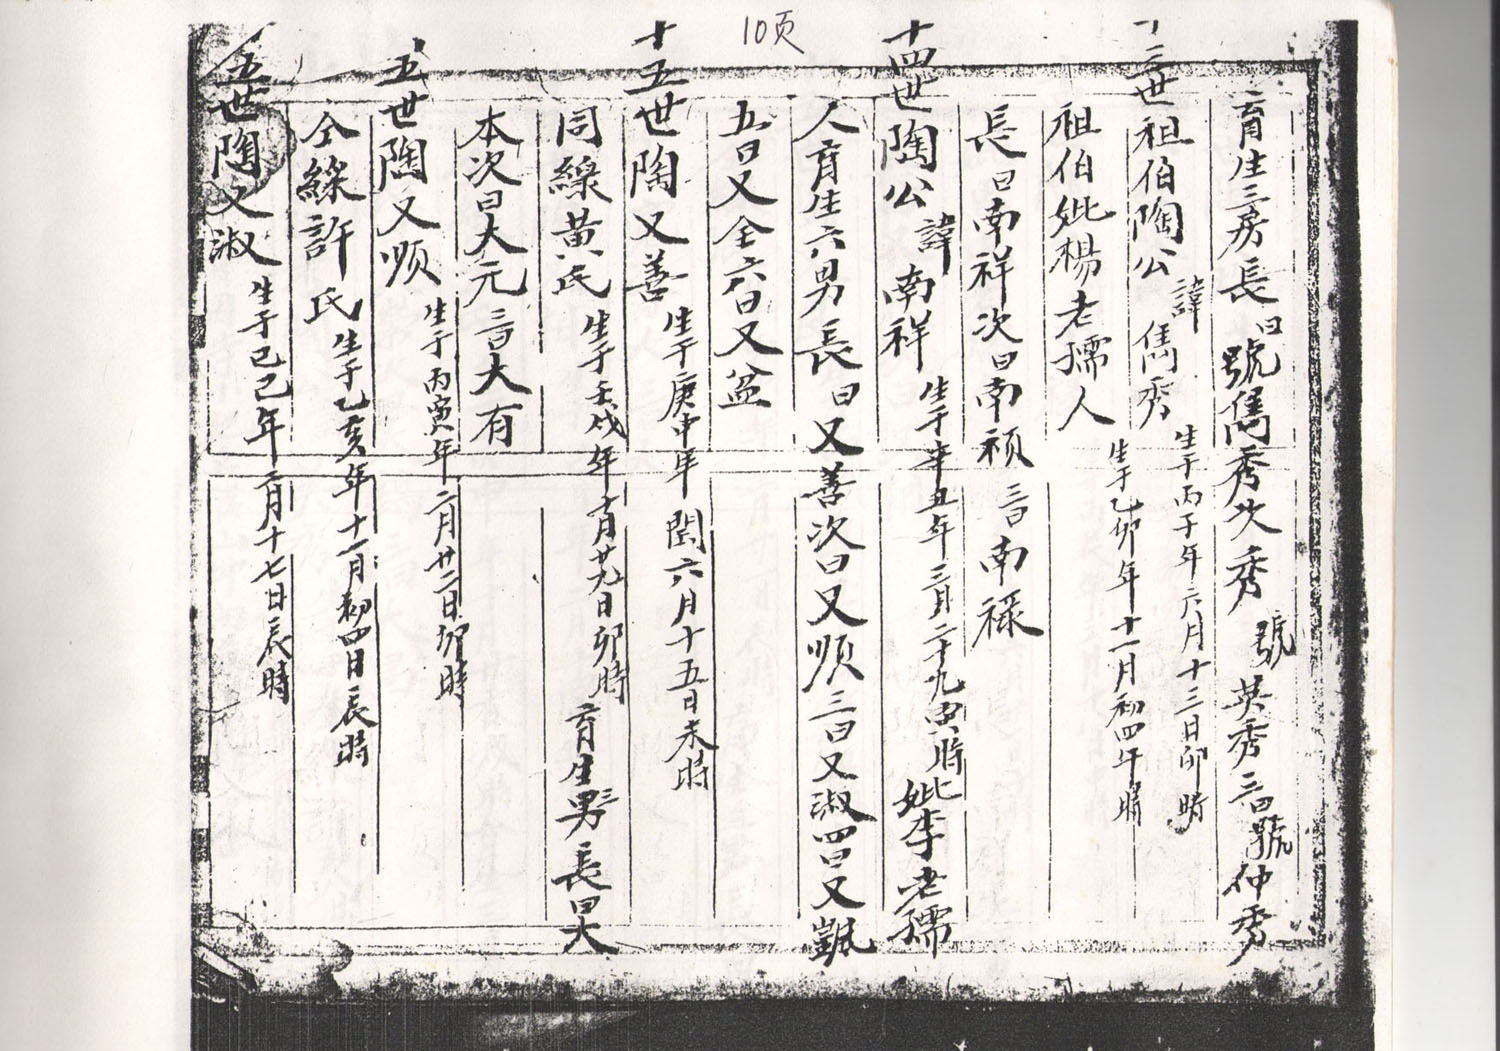 10页
育生三房長曰號雋秀次秀號英秀三曰號仲秀
十三世祖伯陶公諱雋秀生于丙子年六月十三日卯時
祖伯妣楊老孺人生于乙卯年十一月初四午時
長曰南祥次曰南祯三曰南禄
十四世陶公諱南祥生于辛丑年三月二十九寅時妣李老孺
人育生六男長曰又善次曰又順三曰又淑四曰又觀
五曰又全六曰又盆
十五世陶又善生于庚申年閏六月十五日未時
同緣黄氏生于壬戌年十月廿九日卯時育生三男長曰大
本次曰大元三曰大有
五世陶又順生于丙寅年二月廿二日卯時
仝緣許氏生于乙亥年十一月初四日辰時
五世陶又淑生于己巳年二月十七日辰時